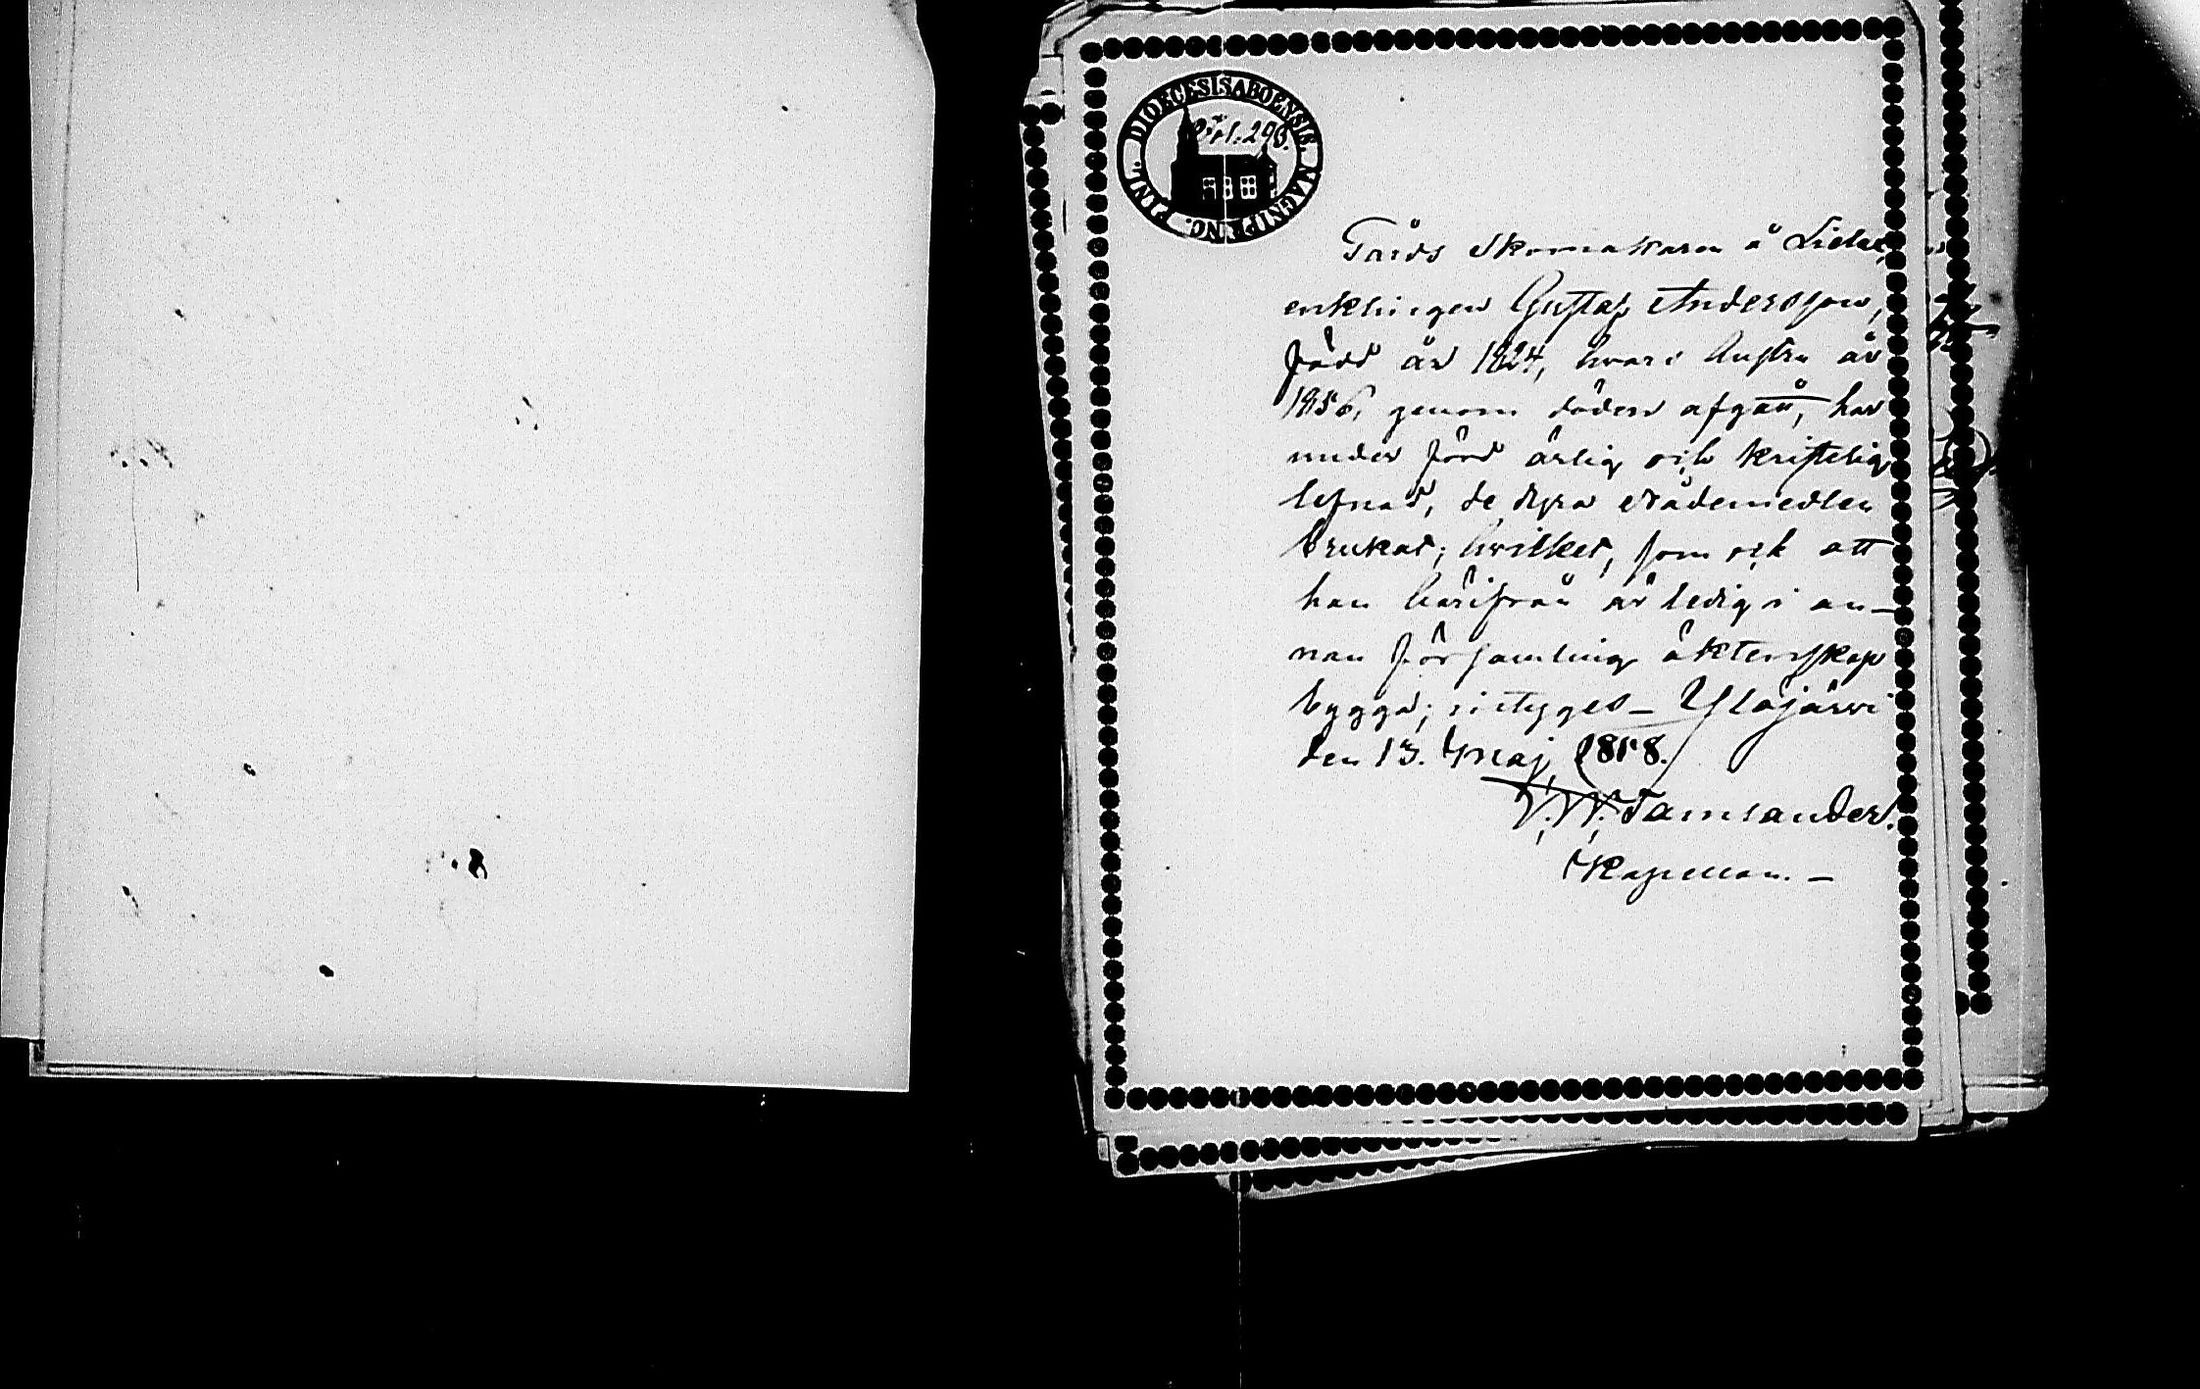 DIOECESIS ABOENSIS. MAGNI PRINC. FINL.
296.
Gårds Skomakaren å
enklingen Gustaf Andersson,
född år 1824, hvars hustru år
1856, genom döden afgått, har
under förd ärlig och kristelig
lefnad, de dyra Nådemedlen
brukat; hvilket, som ock att
han härifrån är ledig i an-
nan församling äktenskap
bygga; intygges - Ylöjärvi
den 13. Maj 1858.
Tamlander.
Kapellan. -